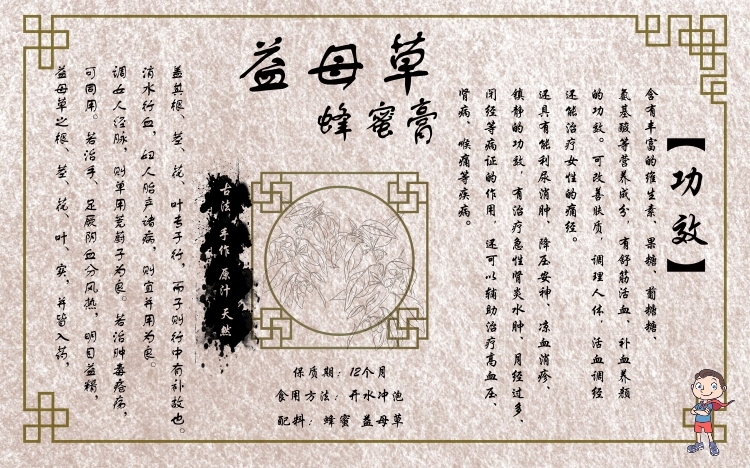 益母草
蜂蜜膏
【功效】
含有丰富的维生素、果糖、葡萄糖、
氨基酸等营养成分，有舒筋活血、补血养颜
的功效。可改善肤质，调理人体，活血调经
还能治疗女性的痛经。
还具有能利尿消肿、降压安神、凉血消疹、
镇静的功效，有治疗急性肾炎水肿、月经过多、
闭经等病证的作用，还可以辅助治疗高血压、
肾病、喉痛等疾病。
古法 手作 原汁 天然
益母草之根、茎、花、叶、实，并皆入药，
可同用。若治手、足厥阴血分风热，明目益精，
调女人经脉，则单用茺蔚子为良。若治肿毒疮疡，
消水行血，妇人胎产诸病，则宜并用为良。
盖其根、茎、花、叶专于行，而子则行中有补故也。
保质期：12个月
食用方法：开水冲泡
配料：蜂蜜 益母草